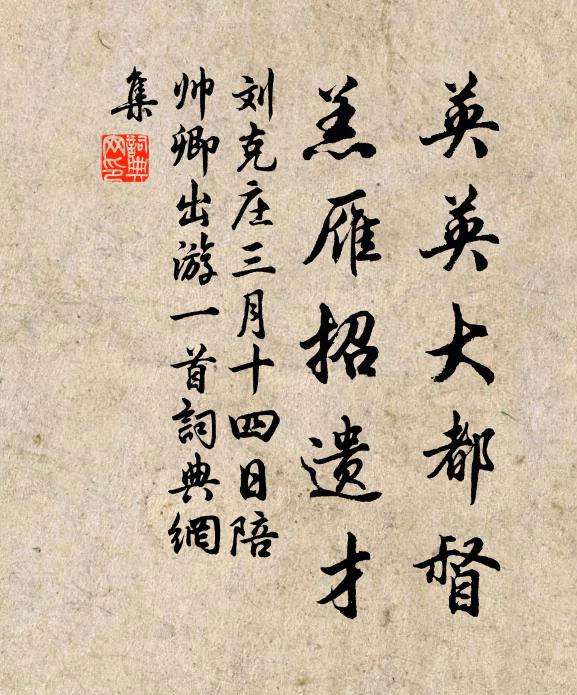 英英大都督
羔雁招遗才
刘克庄三月十四日陪
帅卿出游一首詞典網
集
詞典
网印